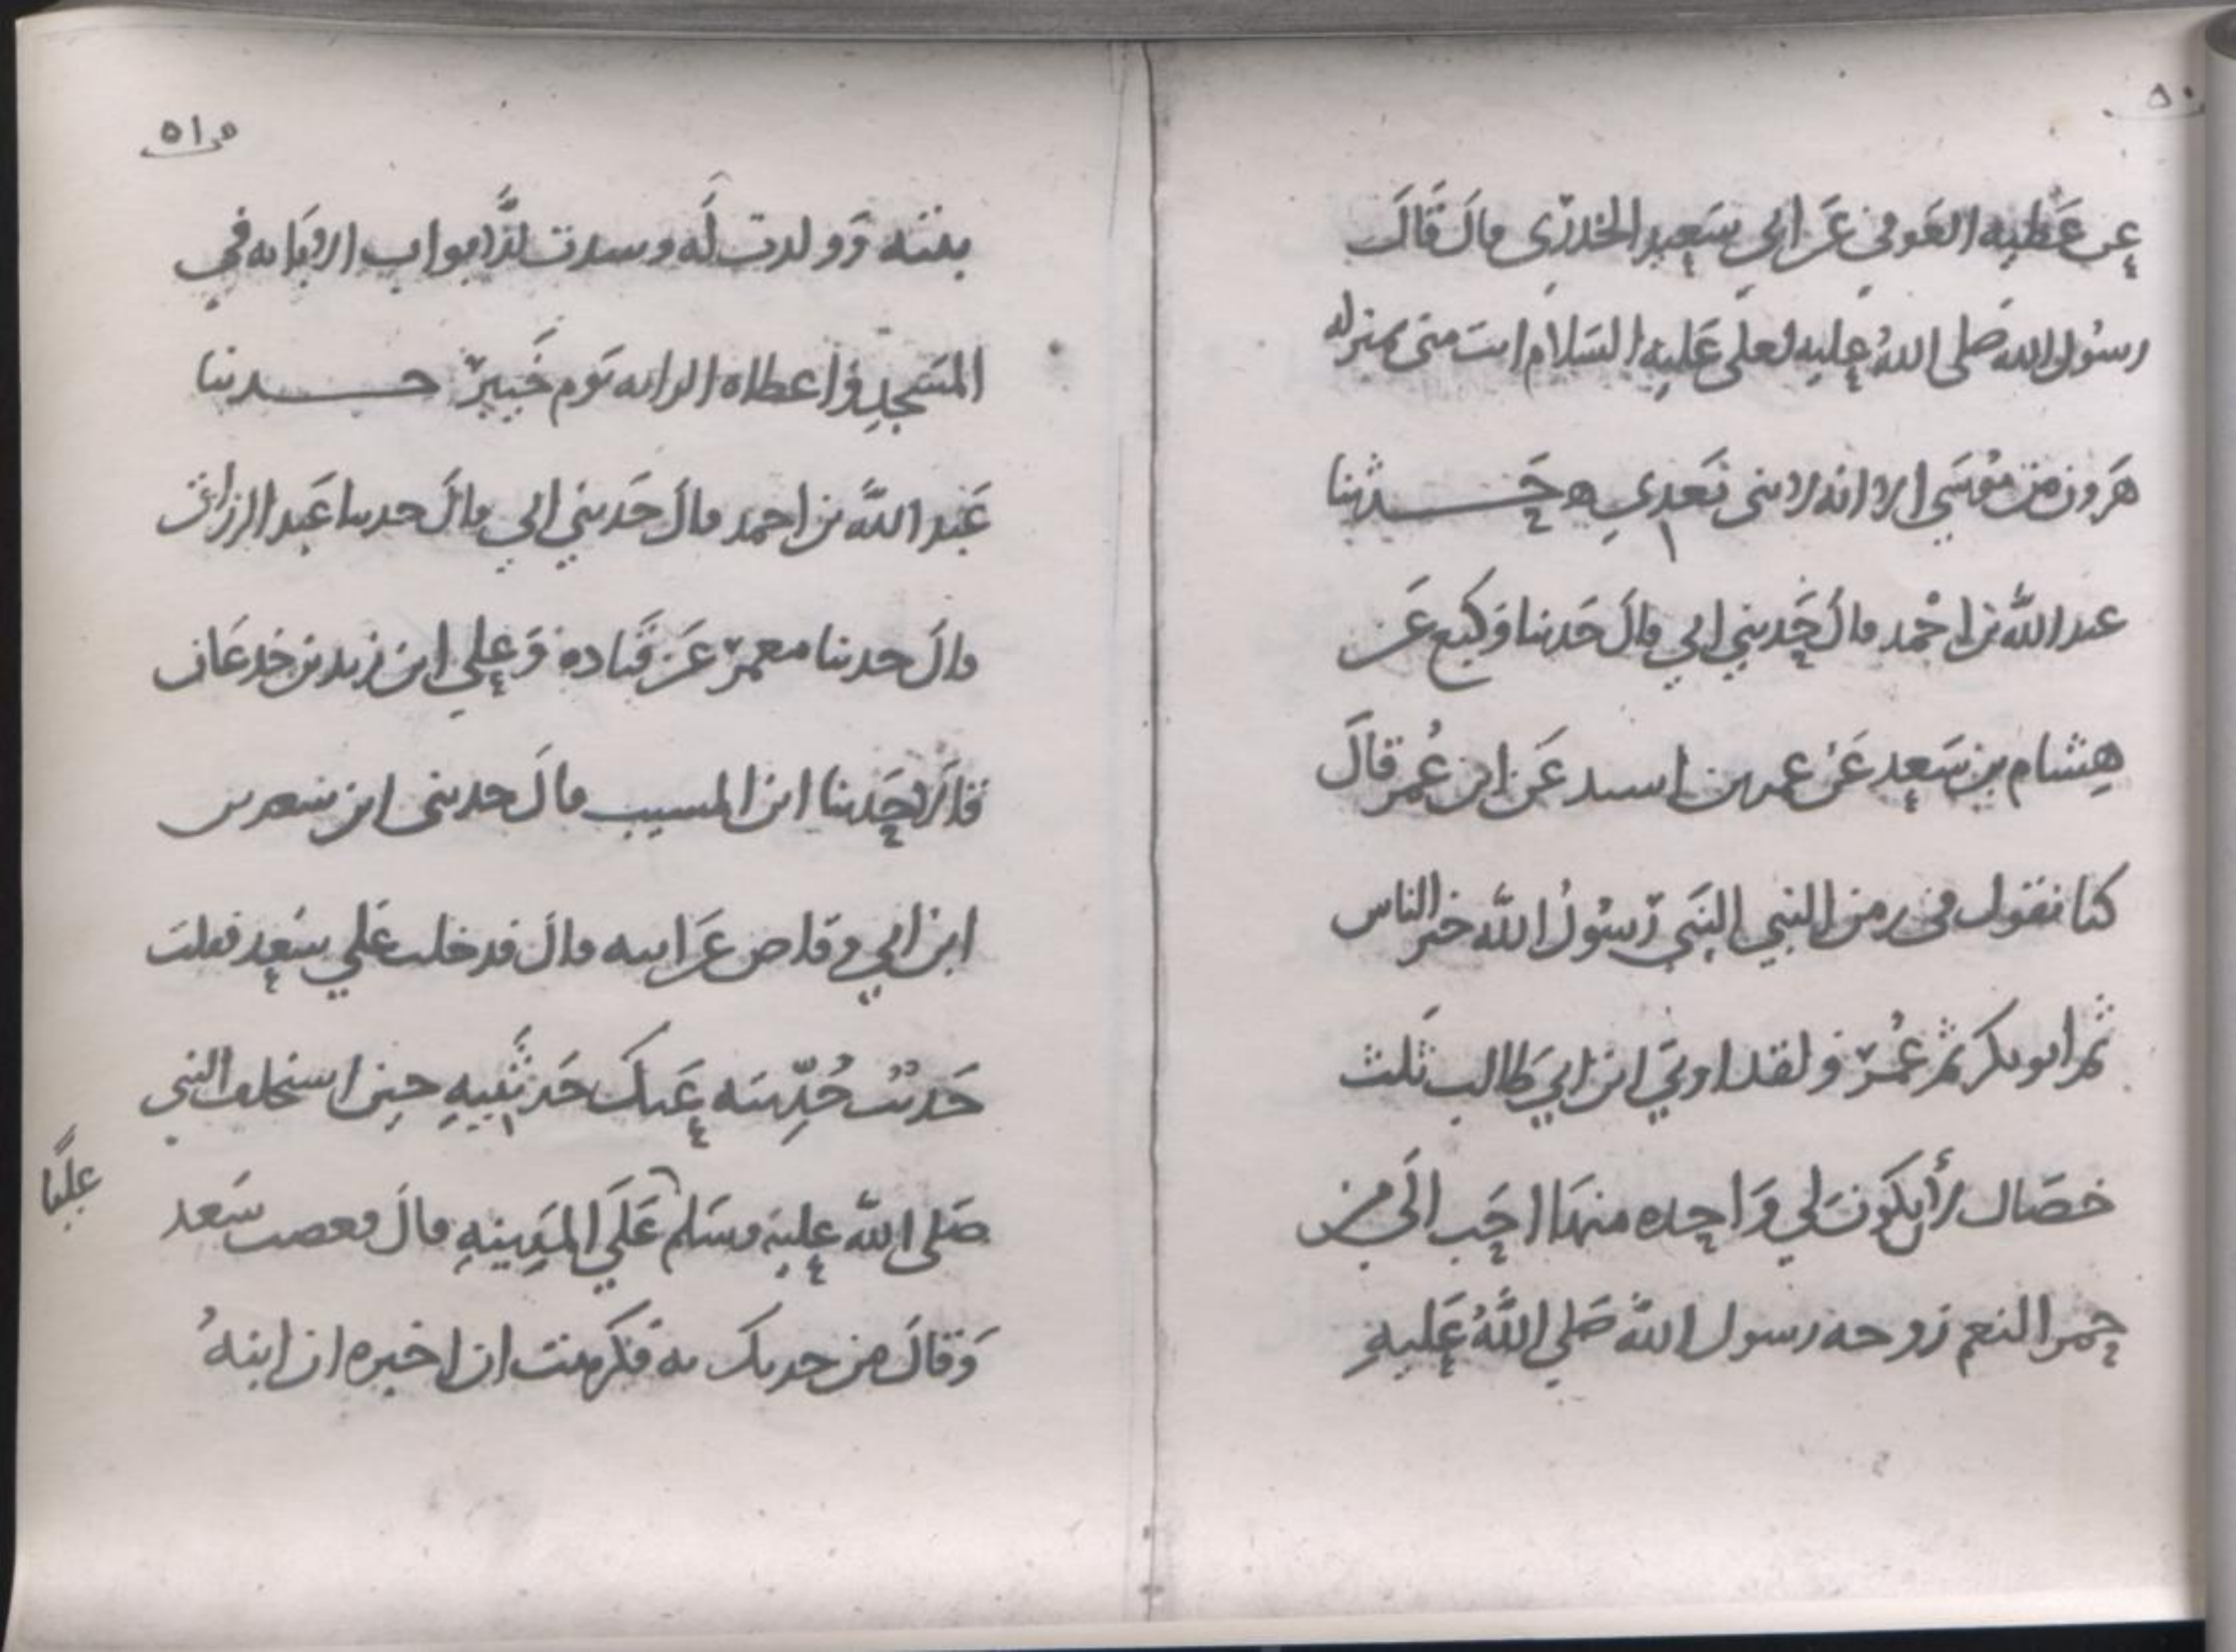 ٥٠
عن عطيه العوفي عن ابي سعيد الخدري قال قال
رسول الله صلى الله عليه لعلي عليه السلام انت منى بمنزله
هرون من موسى الا انه لا نبى بعدي ه حدثنا
عبد الله بن احمد قال حدثني ابي قال حدثنا وكيع عن
هشام بن سعد عن عمر بن اسيد عن ابن عمر قال
كنا نقول في زمن النبي النبي رسول الله خير الناس
ثم ابو بكر ثم عمر ولقد اوتي ابن ابي طالب ثلث
خصال لأن يكون لي واحده منها احب الي من
حمر النعم زوجه رسول الله صلى الله عليه
ص ٥١
بنته وولدت له وسدت الابواب الا بابه في
المسجد واعطاه الرايه يوم خيبر حدثنا
عبد الله بن احمد قال حدثني ابي قال حدثنا عبد الرزاق
قال حدثنا معمر عن قتاده وعلي ابن زيد بن جدعان
قالا حدثنا ابن المسيب قال حدثنى ابن سعد بن
ابن ابي وقاص عن ابيه قال فدخلت على سعد فقلت
حديث حدثته عنك حدثنيه حين استخلف النبي
صلى الله عليه وسلم على المدينه قال فغضب سعد
عليا
وقال من حدثك به فكرهت ان اخبره ان ابنه